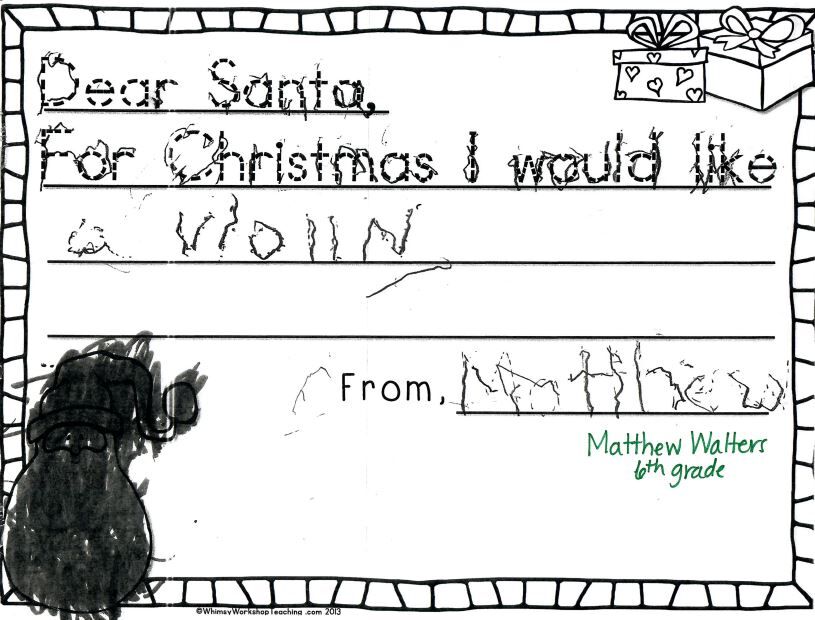 Dear Santa,
For Christmas I would like
a VIolIN
From, MattHew
Matthew Walters
6th grade
©WhimsyWorkshopTeaching .com 2013